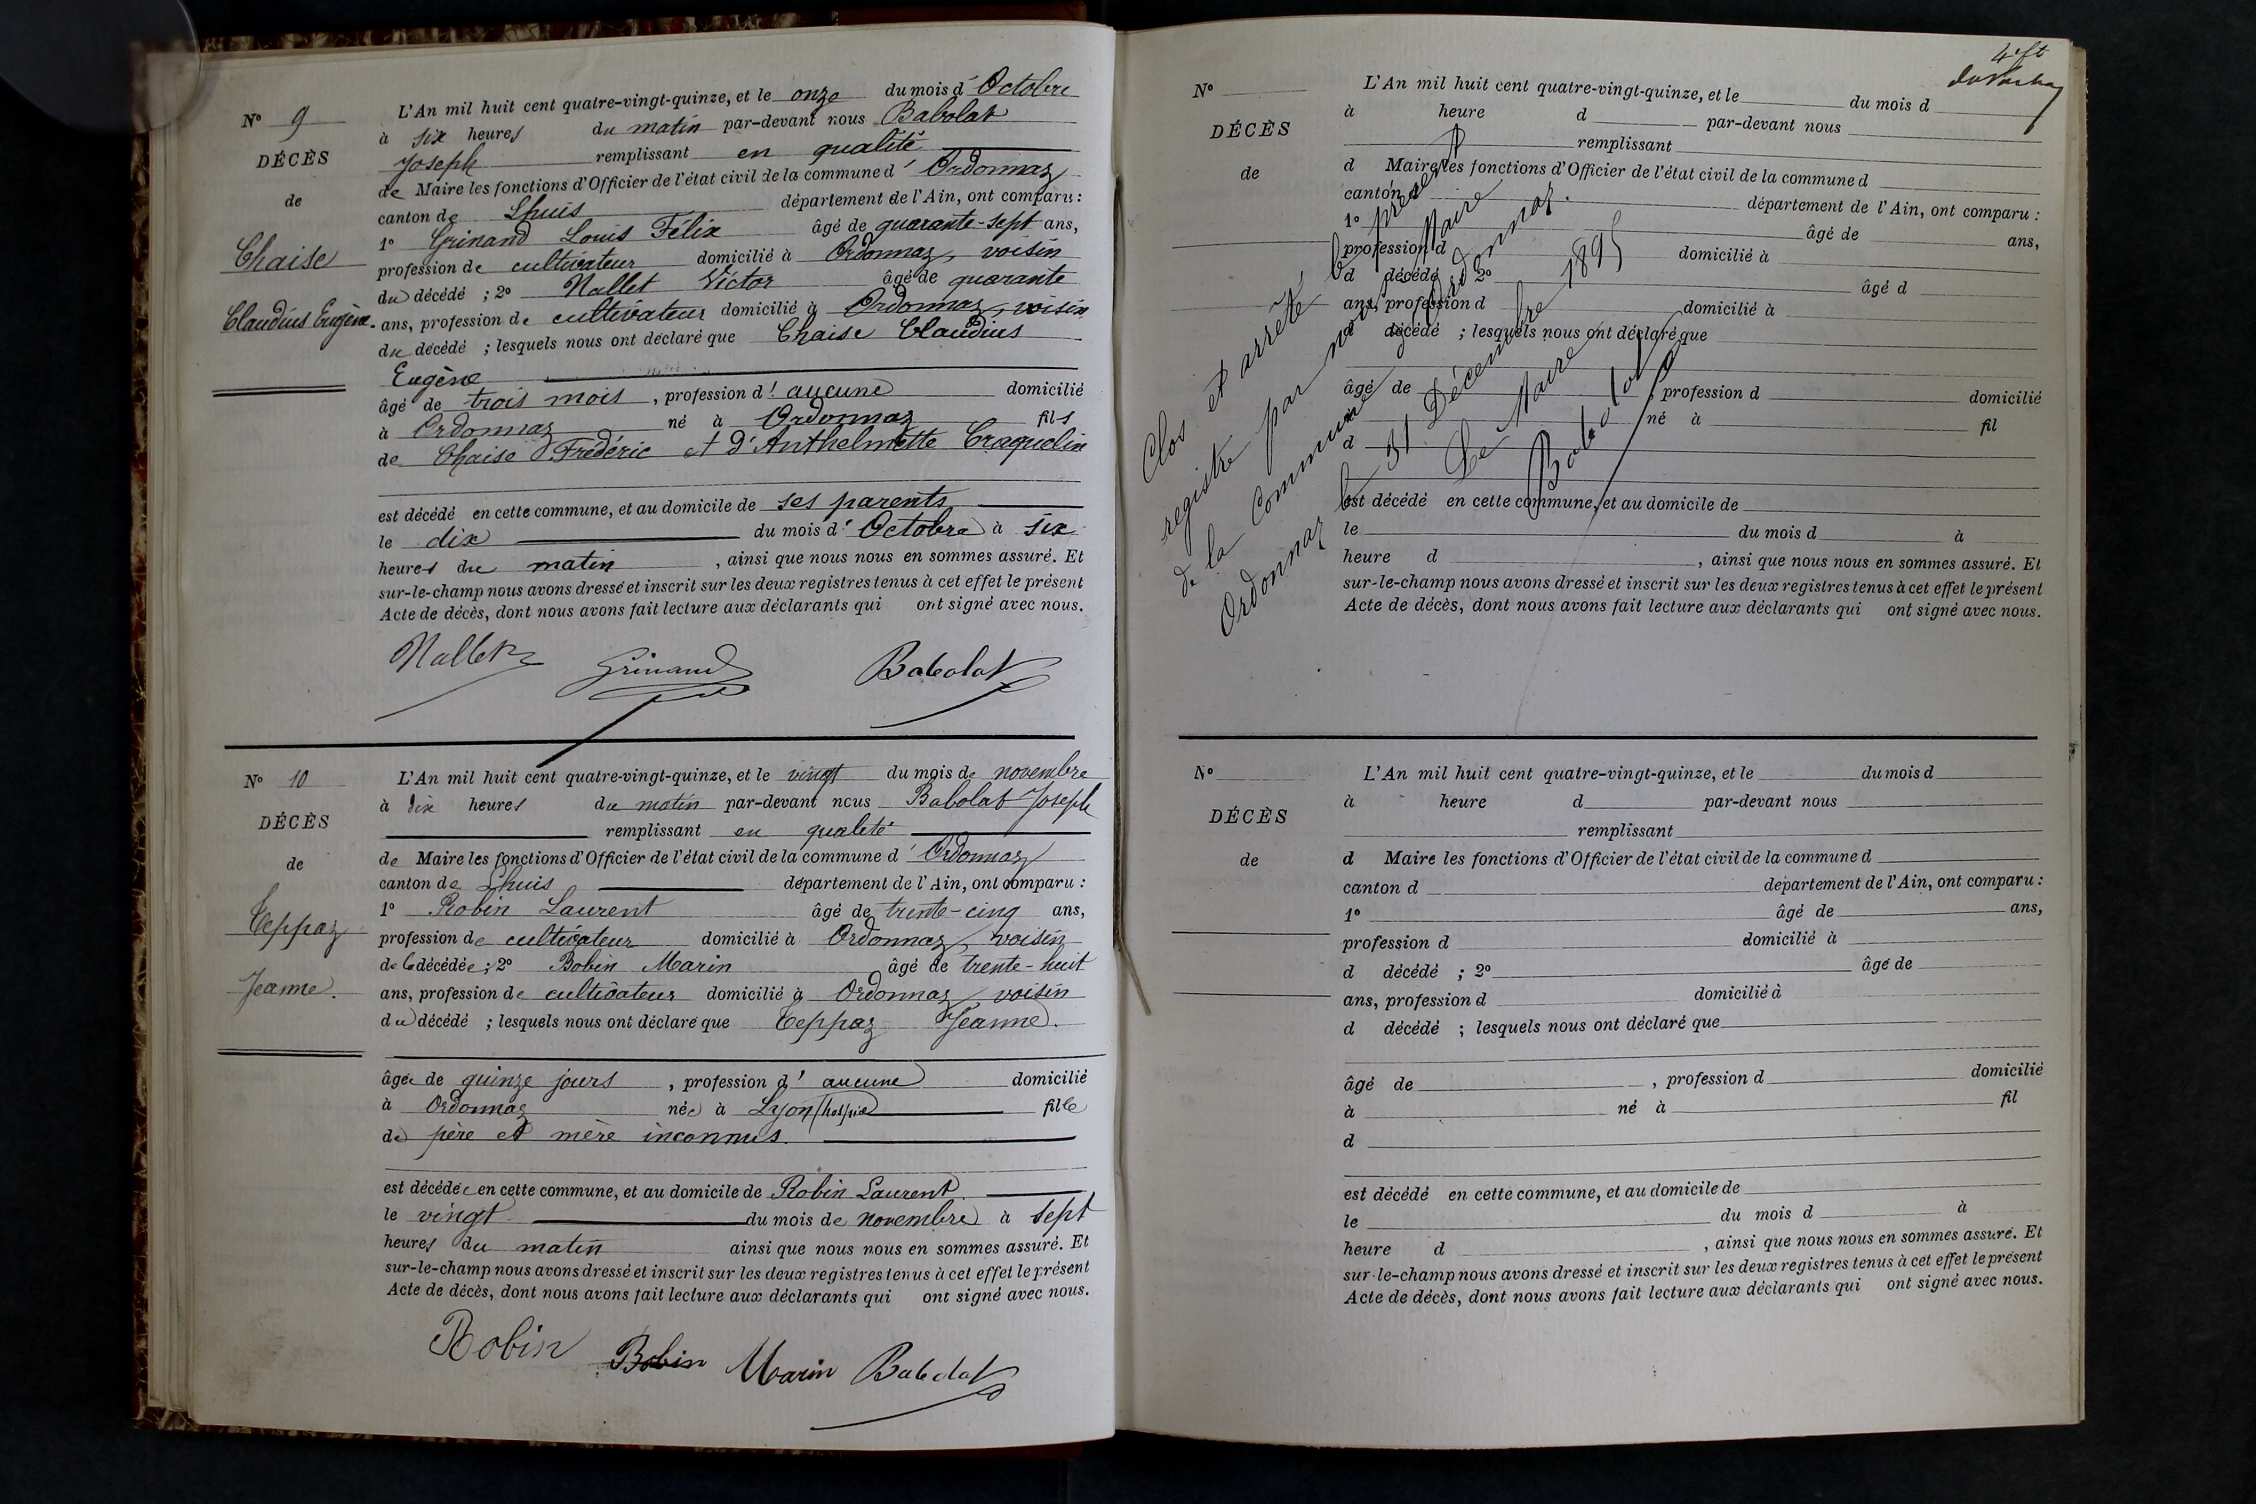 N° 9
DÉCÈS
de
Chaise
Claudius Eugène.
L'An mil huit cent quatre-vingt-quinze, et le onze du mois d' Octobre
à six heures du matin par-devant nous Babolat
Joseph remplissant en qualité
de Maire les fonctions d'Officier de l'état civil de la commune d' Ordonnaz
canton de Lhuis département de l'Ain, ont comparu :
1° Grinand Louis Félix âgé de quarante-sept ans,
profession de cultivateur domicilié à Ordonnaz, voisin
du décédé ; 2° Nallet Victor âgé de quarante
ans, profession de cultivateur domicilié à Ordonnaz, voisin
du décédé ; lesquels nous ont déclaré que Chaise Claudius
Eugène
âgé de trois mois, profession d' aucune domicilié
à Ordonnaz né à Ordonnaz fils
de Chaise Frédéric et d'Anthelmette Craquelin
est décédé en cette commune, et au domicile de ses parents
le dix du mois d' Octobre à six
heures du matin, ainsi que nous nous en sommes assuré. Et
sur-le-champ nous avons dressé et inscrit sur les deux registres tenus à cet effet le présent
Acte de décès, dont nous avons fait lecture aux déclarants qui ont signé avec nous.
Nallet Grinand Babolat
N° 10
DÉCÈS
de
Teppaz
Jeanne.
L'An mil huit cent quatre-vingt-quinze, et le vingt du mois de novembre
à dix heures du matin par-devant nous Babolat Joseph
remplissant en qualité
de Maire les fonctions d'Officier de l'état civil de la commune d' Ordonnaz
canton de Lhuis département de l'Ain, ont comparu :
1° Robin Laurent âgé de trente-cinq ans,
profession de cultivateur domicilié à Ordonnaz, voisin
de la décédée ; 2° Bobin Marin âgé de trente-huit
ans, profession de cultivateur domicilié à Ordonnaz, voisin
du décédé ; lesquels nous ont déclaré que Teppaz Jeanne.
âgée de quinze jours, profession d' aucune domicilié
à Ordonnaz née à Lyon (hospice) fille
de père et mère inconnus.
est décédée en cette commune, et au domicile de Robin Laurent
le vingt du mois de novembre à sept
heures du matin ainsi que nous nous en sommes assuré. Et
sur-le-champ nous avons dressé et inscrit sur les deux registres tenus à cet effet le présent
Acte de décès, dont nous avons fait lecture aux déclarants qui ont signé avec nous.
Robin Bobin Marin Babolat
N°
DÉCÈS
de
L'An mil huit cent quatre-vingt-quinze, et le du mois d
à heure d par-devant nous
remplissant
d Maire les fonctions d'Officier de l'état civil de la commune d
canton d département de l'Ain, ont comparu :
1° âgé de ans,
profession d domicilié à
d décédé ; 2° âgé d
ans, profession d domicilié à
d décédé ; lesquels nous ont déclaré que
âgé de , profession d domicilié
à né à fil
d
est décédé en cette commune, et au domicile de
le du mois d à
heure d , ainsi que nous nous en sommes assuré. Et
sur-le-champ nous avons dressé et inscrit sur les deux registres tenus à cet effet le présent
Acte de décès, dont nous avons fait lecture aux déclarants qui ont signé avec nous.
Clos et arrêté le présent
registre par nous, Maire
de la Commune d'Ordonnaz.
Ordonnaz le 31 Décembre 1895
Le Maire
Babolat
N°
DÉCÈS
de
L'An mil huit cent quatre-vingt-quinze, et le du mois d
à heure d par-devant nous
remplissant
d Maire les fonctions d'Officier de l'état civil de la commune d
canton d département de l'Ain, ont comparu :
1° âgé de ans,
profession d domicilié à
d décédé ; 2° âgé de
ans, profession d domicilié à
d décédé ; lesquels nous ont déclaré que
âgé de , profession d domicilié
à né à fil
d
est décédé en cette commune, et au domicile de
le du mois d à
heure d , ainsi que nous nous en sommes assuré. Et
sur-le-champ nous avons dressé et inscrit sur les deux registres tenus à cet effet le présent
Acte de décès, dont nous avons fait lecture aux déclarants qui ont signé avec nous.